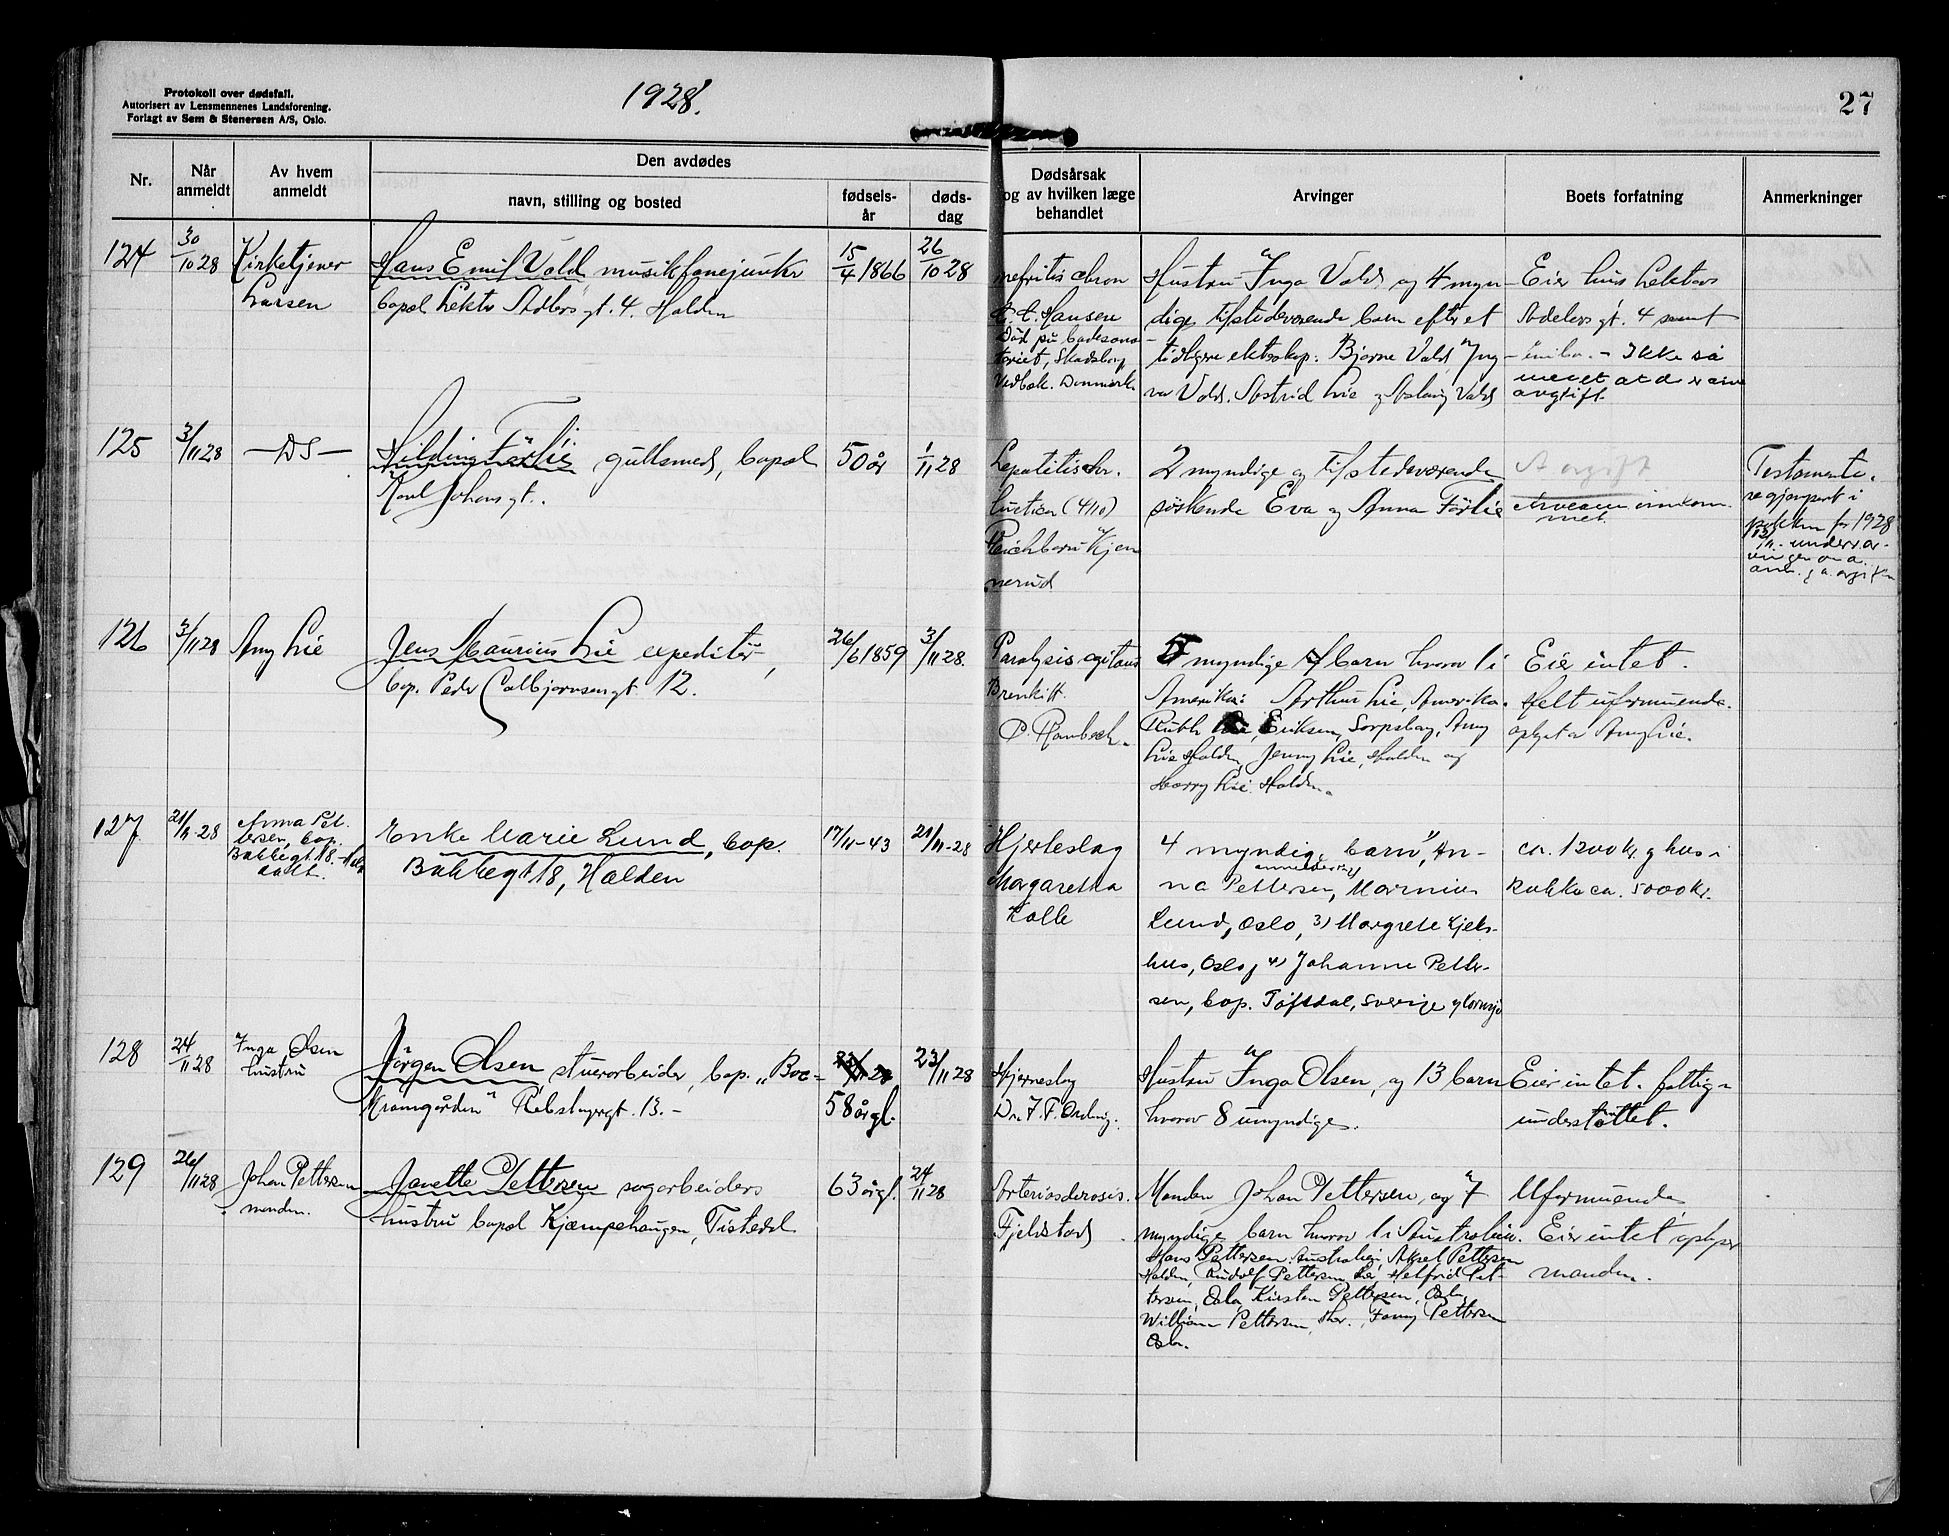 Protokoll over dødsfall.
Autorisert av Lensmennenes Landsforening.
Forlagt av Sem & Stenersen A/S, Oslo.
1928.
27
Nr.
Når anmeldt
Av hvem anmeldt
Den avdødes
navn, stilling og bosted
fødsels-
år
døds-
dag
Dødsårsak
og av hvilken læge
behandlet
Arvinger
Boets forfatning
Anmerkninger
124
30/10 28
Kirketjener
Larsen
Hans Emil Vold, musikfanejunker
bopel Lektor Adlers gt. 4. Halden
15/4 1866
26/10 28
nefritis chron
Hansen
Død på badesana-
toriet, Skodsborg
Vedbæk. Danmark.
Hustru Inga Vold og 4 myn-
dige tilstedeværende barn efter et
tidligere ekteskap: Bjarne Vold, Ing-
var Vold. Astrid Lie og Aslaug Vold
Eier hus Lektor
Adelers gt. 4 samt
innbo. - Ikke så
meget at de
avgift.
125
3/11 28
— DS —
Hilding Førlie gullsmed, bopel
Karl Johans gt.
50 år
1/11 28
luetica (4/10)
Kjen
nerud
2 myndige og tilstedeværende
søskende Eva og Anna Førlie
Avgift
innkom
met.
Testamente
i
for 1928
126
3/11 28
Amy Lie
Jens Maurius Lie expeditør,
bop. Peder Colbjørnsensgt 12.
26/6 1859
3/11 28.
Paralysis agitans
P. Rambech.
5 myndige barn hvorav 1 i
Amerika: Arthur Lie, Amerika.
Ruth Eriksen, Sarpsborg, Amy
Lie Halden, Jenny Lie, Halden og
Harry Lie. Halden.
Eier intet.
Helt uformuende.
Amy Lie.
127
21/11-28
Anna Pet-
tersen, bop.
Bakkegt 18.
datt.
Enke Marie Lund, bop.
Bakkegt 18, Halden
17/11-43
21/11-28
Hjerteslag
Margaretha
Kolle
4 myndige barn, 1) An-
anmelderen
na Pettersen, Marinius
Lund, Oslo, 3) Margrete Kjels-
hus, Oslo, 4) Johanne Petter-
sen, bop. Töftdal, Sverige
ca. 1200 kr. og hus i
Bakke ca. 5000 kr.
128
24/11 28
Inga Olsen
hustru
Jørgen Olsen, stuerarbeider, bop. "Boe-
Kramgården" Rebslagergt. 13. -
23/11 28
58 år gl.
23/11 28
Hjerneslag
Dr. F. F. Ording.
Hustru Inga Olsen, og 13 barn
hvorav 8 umyndige.
Eier intet. fattig-
understøttet.
129
26/11 28
Johan Pettersen
manden.
Janette Pettersen sagarbeiders
hustru bopel Kjæmpehaugen, Tistedal
63 år gl.
24/11 28
Arteriosclerosis.
Fjeldstad
Manden Johan Pettersen, og 7
myndige barn hvorav 1 i Australien.
Hans Pettersen. Australien, Aksel Pettersen
Halden, Rudolf Pettersen, Helfrid Pet-
tersen, Oslo, Kirsten Pettersen, Oslo,
William Pettersen, Fanny Pettersen
Oslo.
Uformuende
Eier intet opgir
manden.